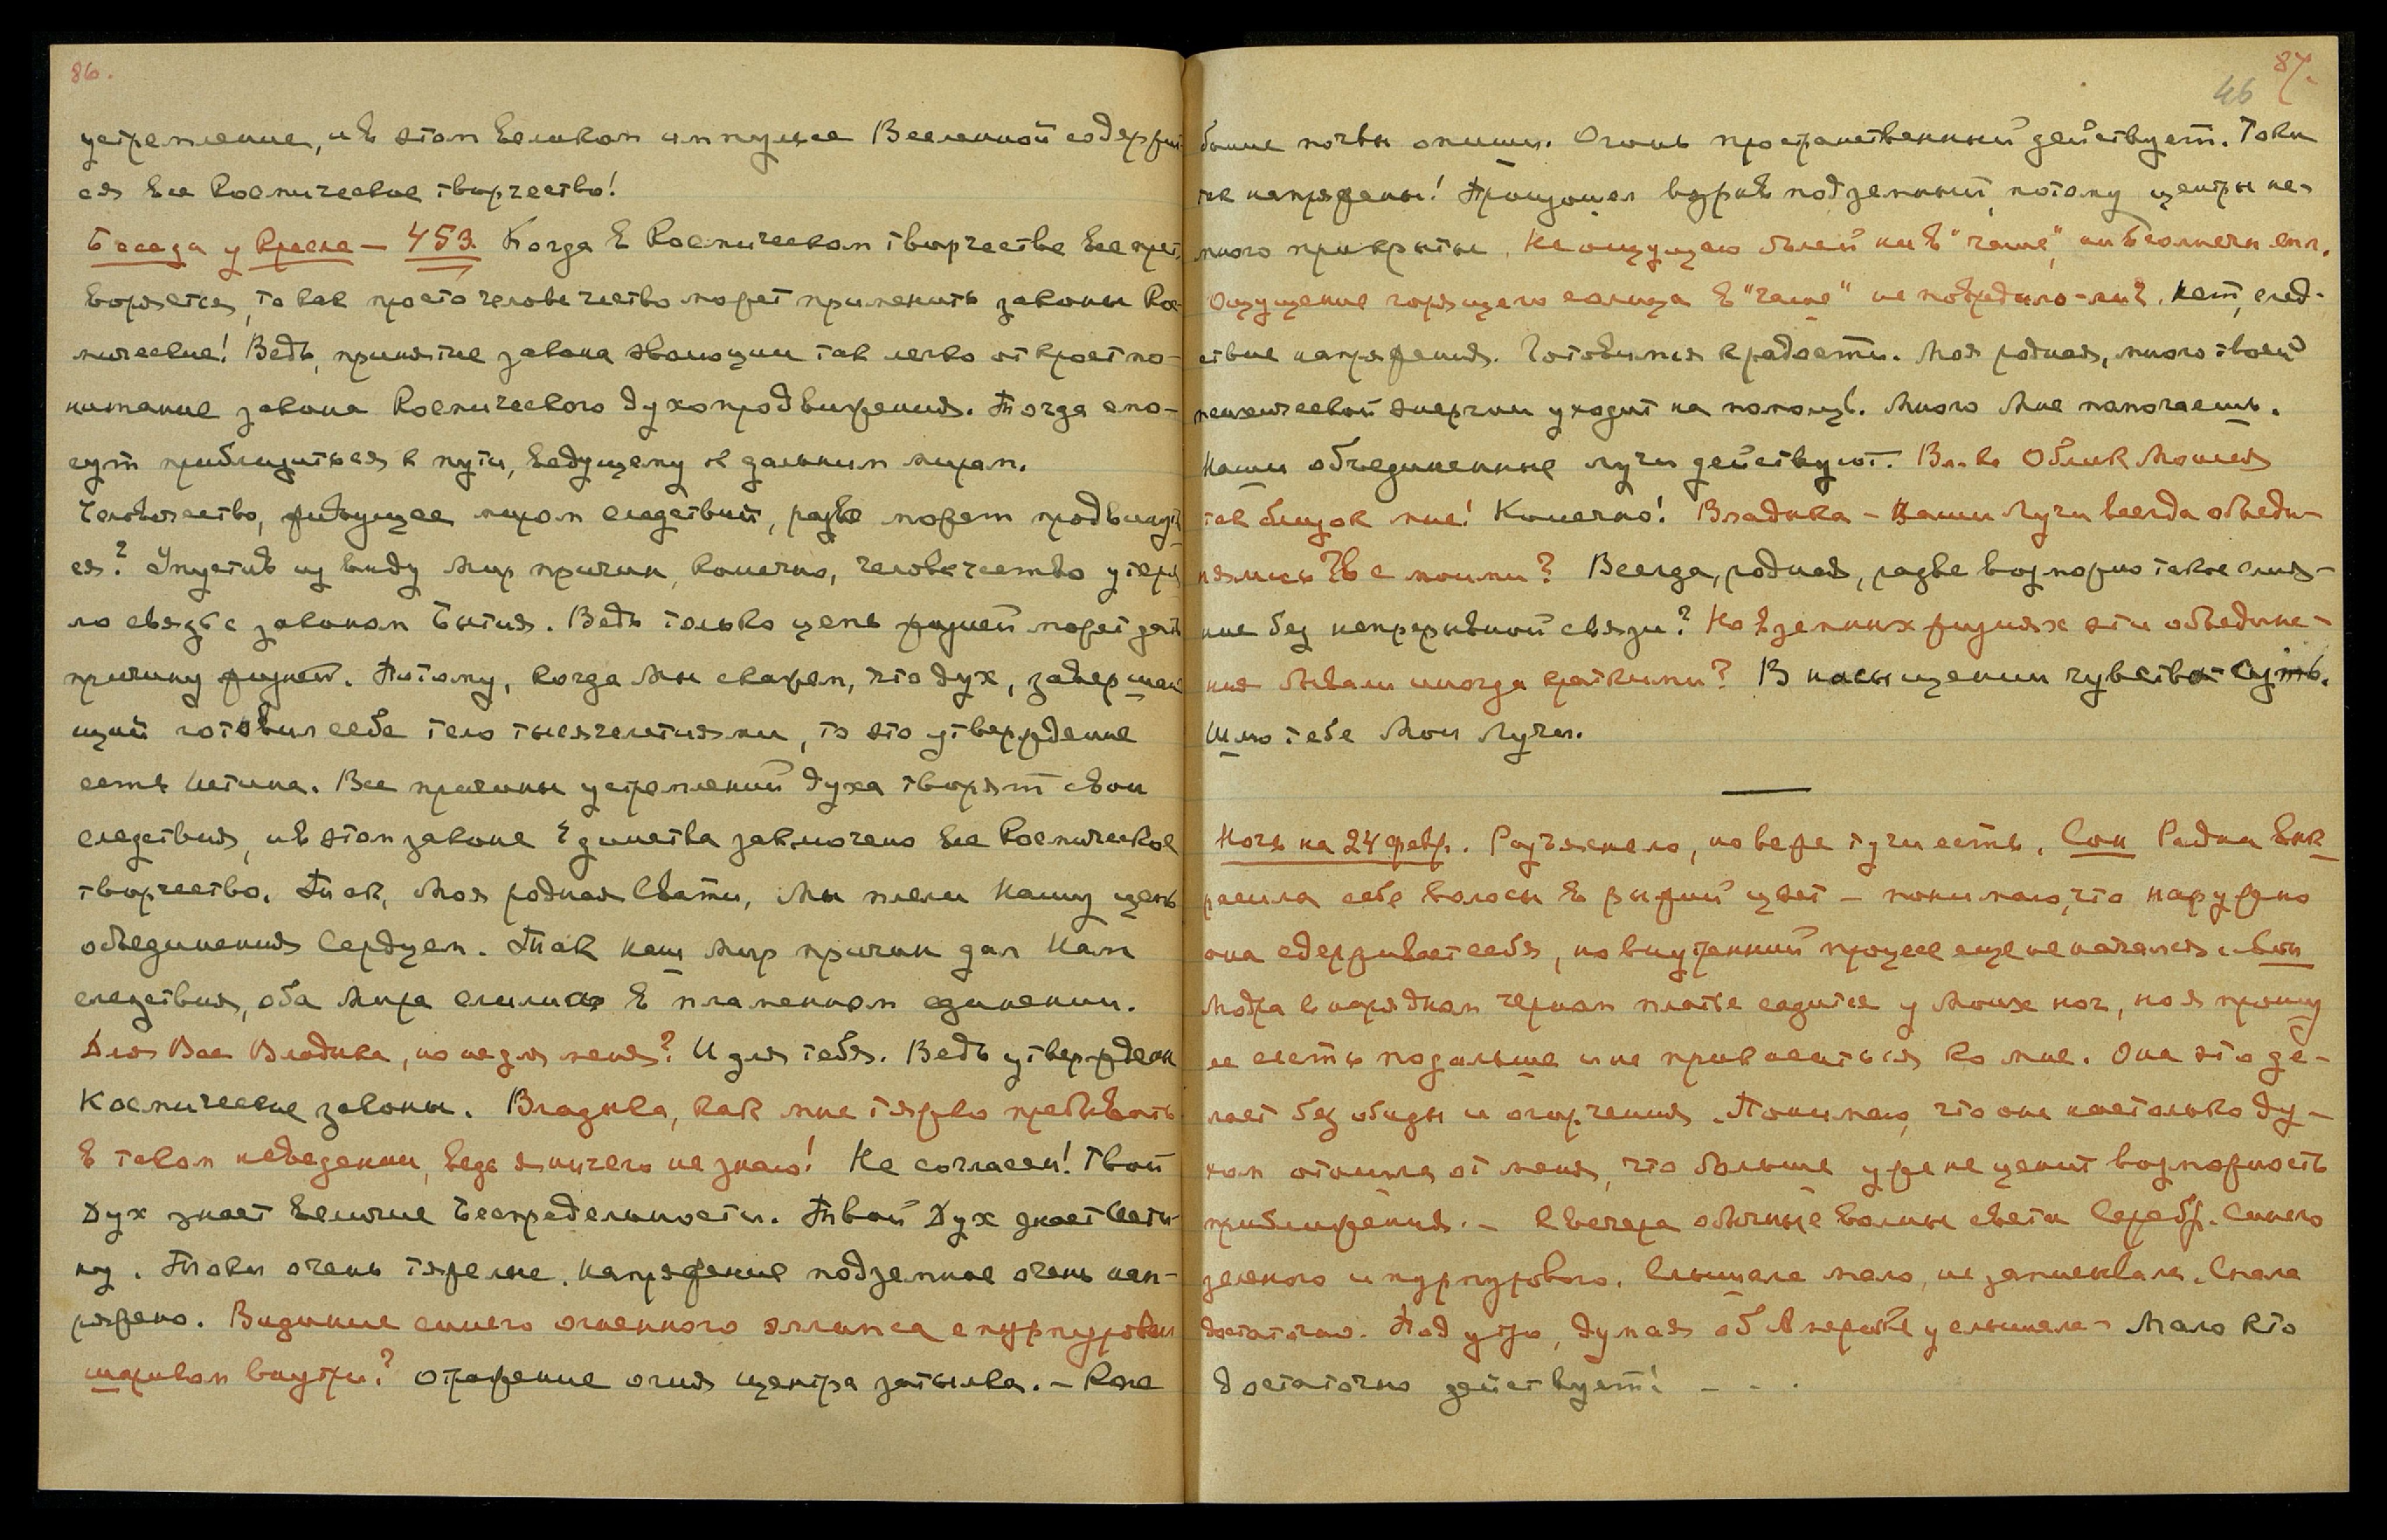 86.
устремление, и в этом великом импульсе Вселенной содержит-
ся все Космическое творчество!
Беседа у Кресла — 453. Когда в Космическом творчестве все прет-
воряется, то как просто человечество может применить законы Кос-
мические! Ведь, принятие закона эволюции так легко откроет по-
нимание закона Космического духопродвижения. Тогда смо-
гут приблизиться к пути, ведущему к дальним мирам.
Человечество, живущее миром следствий, разве может продвинуть-
ся? Упустив из виду мир причин, конечно, человечество утеря-
ло связь с законом Бытия. Ведь только цепь жизней может дать
причину жизней. Потому, когда Мы скажем, что дух, завершаю-
щий готовил себе тело тысячелетиями, то это утверждение
есть Истина. Все причины устремлений духа творят свои
следствия, и в этом законе Единства заключено все Космическое
творчество. Так, Моя родная Свати, Мы плели Нашу цепь
объединения Сердцем. Так наш Мир причин дал Нам
следствия, оба Мира слились в пламенном единении.
Для Вас Владыка, но не для меня? И для тебя. Ведь утверждены
Космические законы. Владыка, как мне тяжко пребывать
в таком неведении, ведь я ничего не знаю! Не согласен! Твой
Дух знает величие Беспредельности. Твой Дух знает Исти-
ну. Токи очень тяжелые. Напряжение подземное очень нап-
ряжено. Видение синего огненного эллипса с пурпуровым
шариком внутри? Отражение огня центра затылка. —
87.
46
почвы опиши. Огонь пространственный действует. Токи
так напряжены! Произошел взрыв подземный, потому центры не-
много прикрыты. Не ощущаю болей ни в "чаше", ни в солнечн. спл.
Ощущение горящего солнца в "чаше" не повредило-ли? Нет, след-
ствие напряжения. Готовимся к радости. Моя родная, много твоей
психической энергии уходит на помощь. Много Мне помогаешь.
Наши объединенные лучи действуют. Вл-ка Облик Мории
так близок мне! Конечно! Владыка — Ваши Лучи всегда объеди-
нялись с моими? Всегда, родная, разве возможно такое слия-
ние без непрерывной связи? Но в земных жизнях эти объедине-
ния бывали иногда краткими? В насыщении чувства суть.
Шлю тебе Мои Лучи.
Ночь на 24 февр. Разъяснело, но везде тучи есть. Сон Радна вык-
расила себе волосы в рыжий цвет — понимаю, что наружно
она сдерживает себя, но внутренний процесс еще не начался. Сон
Модра в нарядном черном платье садится у моих ног, но я прошу
ее сесть подальше и не прикасаться ко мне. Она это де-
лает без обиды и огорчения. Понимаю, что она настолько ду-
хом отошла от меня, что больше уже не ценит возможность
приближения. — С вечера обычные волны света Серебр. Синего
зеленого и пурпурового. Слышала мало, не записывала. Спала
достаточно. Под утро, думая об Америке услышала — Мало кто
достаточно действует! — . .